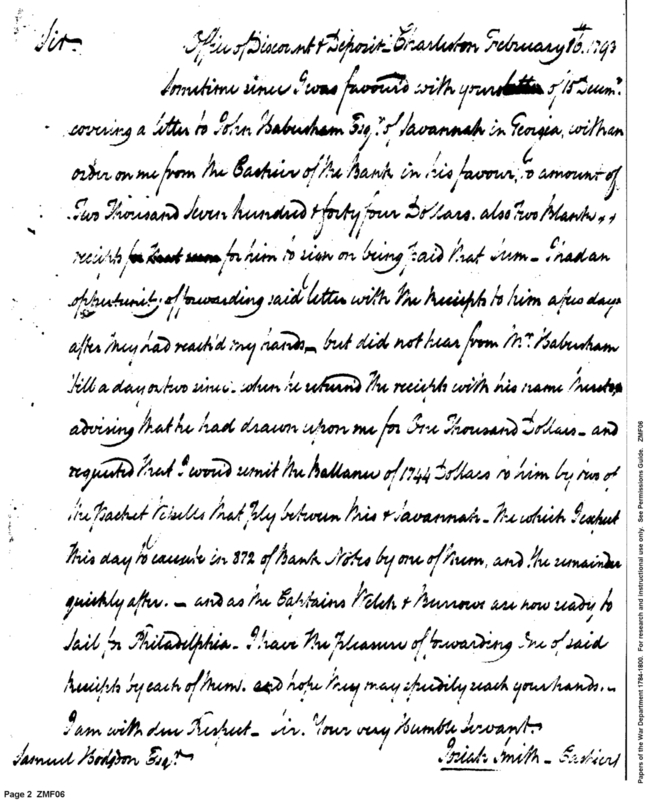 Sir. Office of Discount & Deposit - Charleston February 16th. 1793
Sometime since I was favour'd with your letter of 15 Decemr.
covering a letter to John Habersham Esqr. of Savannah in Georgia, with an
order on me from the Cashier of the Bank in his favour, to amount of
Two Thousand Seven hundred & forty four Dollars. also Two Blank
receipts for that sum for him to sign on being paid that Sum - I had an
opportunity of forwarding said letter with the Receipts to him a few days
after they had reach'd my hands - but did not hear from Mr. Habersham
till a day or two since - when he returnd the receipts with his name thereto
advising that he had drawn upon me for One Thousand Dollars - and
requested that I would remit the Ballance of 1744 Dollars to him by two of
the Packet Vessells that ply between this & Savannah - the which I expect
this day to execute in 872 of Bank Notes by one of them, and the remainder
quickly after. - and as the Captains Welch & Burrows are now ready to
Sail for Philadelphia - I have the pleasure of forwarding One of said
Receipts by each of them. and hope they may speedily reach your hands. -
I am with due Respect - Sir. Your very Humble Servant.
Samuel Hodgdon Esqr. Josiah Smith - Cashier
Page 2 ZMF06
Papers of the War Department 1784-1800. For research and instructional use only. See Permissions Guide. ZMF06